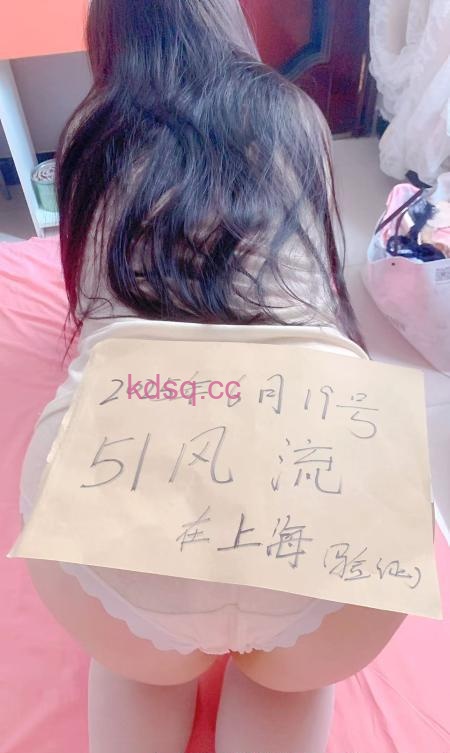 2025年6月19号
kdsq.cc
51风流
在上海(验证)